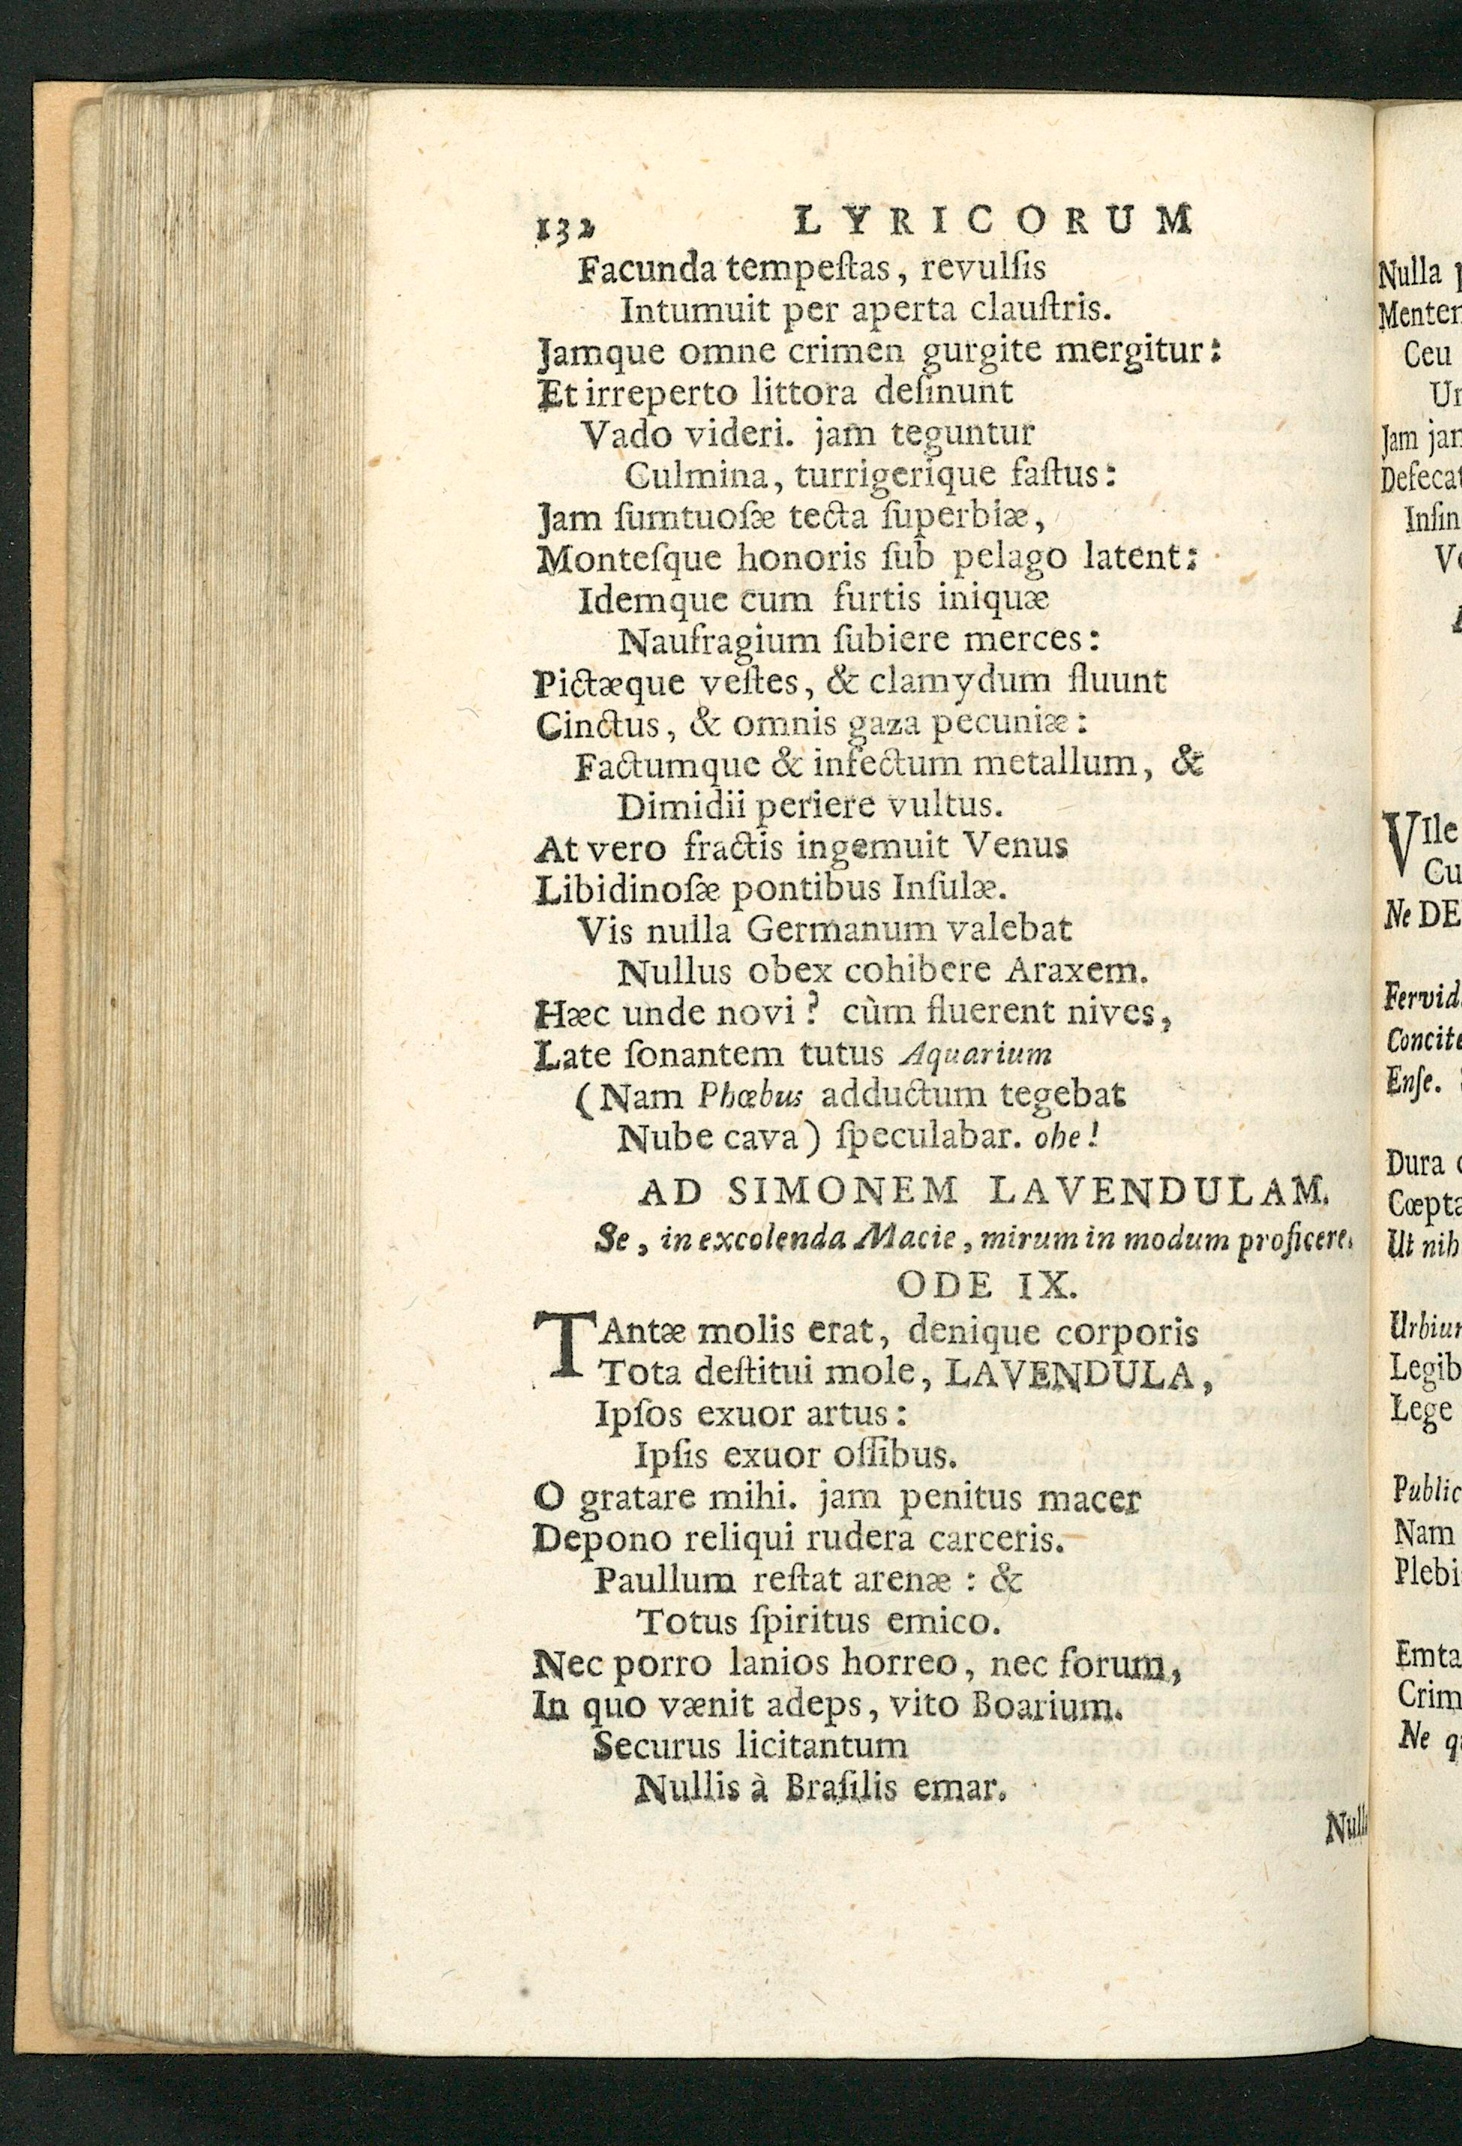 132 LYRICORUM
Facunda tempeſtas, revulſis
Intumuit per aperta clauſtris.
Jamque omne crimen gurgite mergitur:
Et irreperto littora deſinunt
Vado videri. jam teguntur
Culmina, turrigerique faſtus:
Jam ſumtuoſæ tecta ſuperbiæ,
Monteſque honoris ſub pelago latent:
Idemque cum furtis iniquæ
Naufragium ſubiere merces:
Pictæque veſtes, & clamydum fluunt
Cinctus, & omnis gaza pecuniæ:
Factumque & infectum metallum, &
Dimidii periere vultus.
At vero fractis ingemuit Venus
Libidinoſæ pontibus Inſulæ.
Vis nulla Germanum valebat
Nullus obex cohibere Araxem.
Hæc unde novi? cùm fluerent nives,
Late ſonantem tutus Aquarium
(Nam Phœbus adductum tegebat
Nube cava) ſpeculabar. ohe!
AD SIMONEM LAVENDULAM.
Se, in excolenda Macie, mirum in modum proficere.
ODE IX.
TAntæ molis erat, denique corporis
Tota deſtitui mole, LAVENDULA,
Ipſos exuor artus:
Ipſis exuor oſſibus.
O gratare mihi. jam penitus macer
Depono reliqui rudera carceris.
Paullum reſtat arenæ: &
Totus ſpiritus emico.
Nec porro lanios horreo, nec forum,
In quo vænit adeps, vito Boarium.
Securus licitantum
Nullis à Braſilis emar.
Nulla
Ceu
Jam
VIle
Ne
Enſe.
Dura
Ut
Lege
Nam
Ne